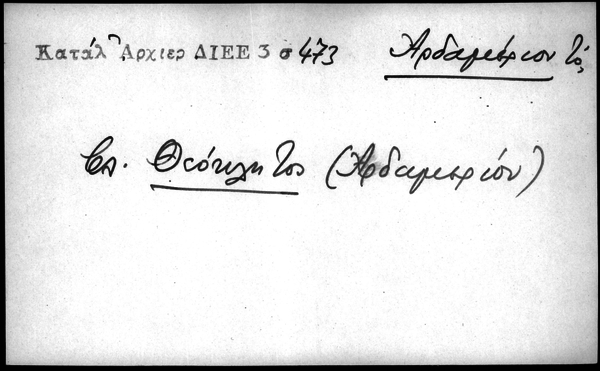 Κατάλ Ἀρχιερ ΔΙΕΕ 3 σ 473 Ἀρδαμερίου Τό,
Ἐπ. Θεόκλητος (Ἀρδαμερίου)